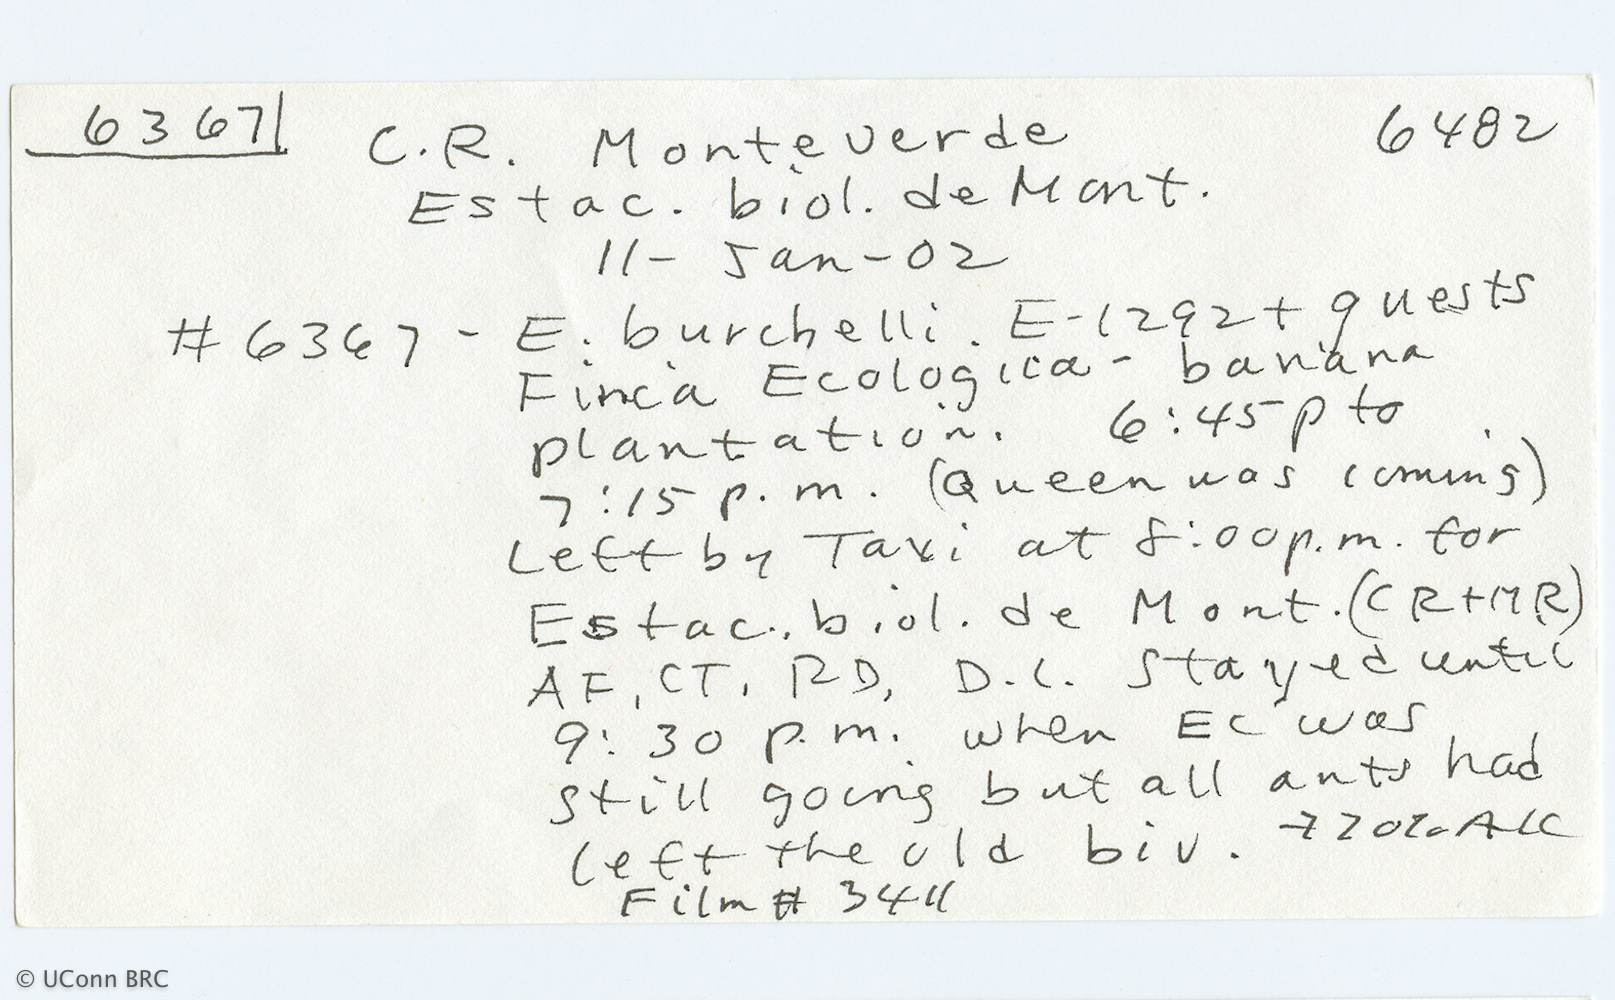 6367
6482
C.R. Monteverde
Estac. biol. de Mont.
11-Jan-02
#6367 - E. burchelli. E-1292 + guests
Finca Ecologica - banana
plantation. 6:45 p to
7:15 p.m. (Queen was coming)
Left by Taxi at 8:00 p.m. for
Estac. biol. de Mont. (CR+MR)
AF, CT, RD, D.L. stayed until
9:30 p.m. when EC was
still going but all ants had
left the old biv. → 70% Alc
Film # 3411
© UConn BRC